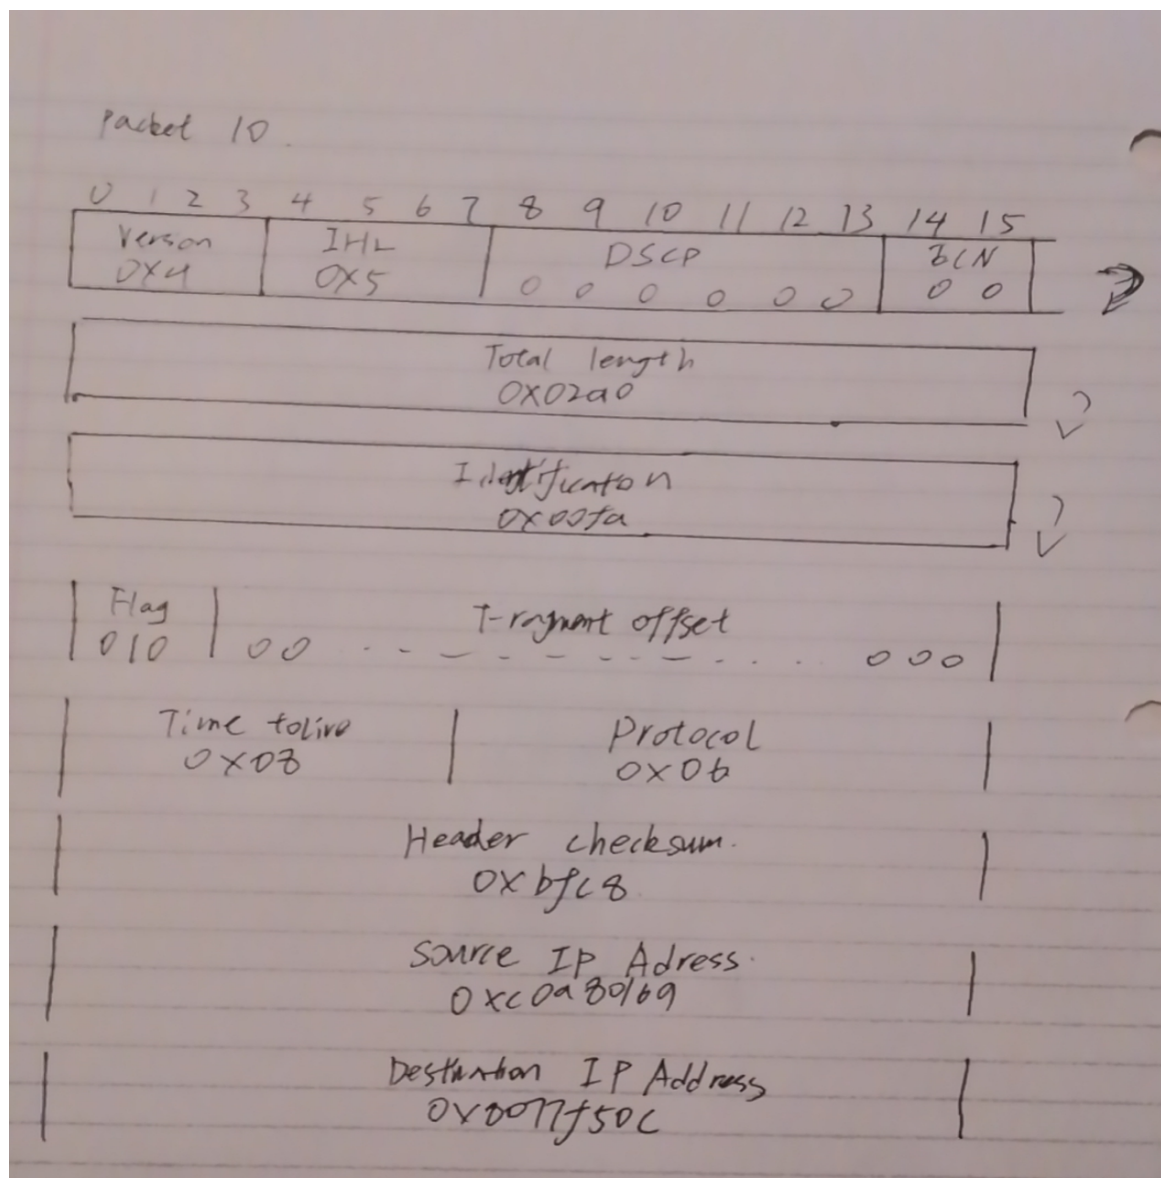 Packet 10.
0 1 2 3 4 5 6 7 8 9 10 11 12 13 14 15
Verson IHL DSCP ECN
0x4 0x5 0 0 0 0 0 0 0 0
Total length
0x02a0
Identificaton
0x00fa
Flag Fragment offset
010 00 . - - - - - - . . . . 000
Time tolive Protocol
0x08 0x06
Header checksum.
0xbfc8
Source IP Adress.
0xc0a80169
Destination IP Address